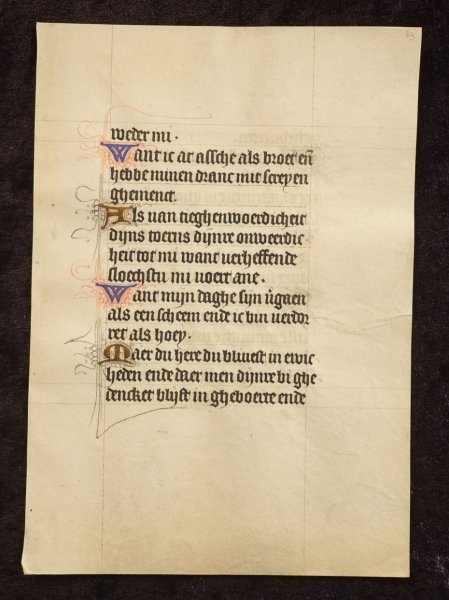 83
weder mi ·
Want ic at assche als broet eñ
hebbe minen dranc mit screyen
ghemenct.
Als van teghenwoerdicheit
dijns toerns dijnre onweerdic
heit tot mi want verheffende
stoechstu mi voert ane ·
Want mijn daghe sijn v̄gaen
als een scheem ende ic bin verdor
ret als hoey ·
Maer du here du bliuest in ewic
heden ende daer men dijnre bi ghe
dencket blijft in gheboerte ende